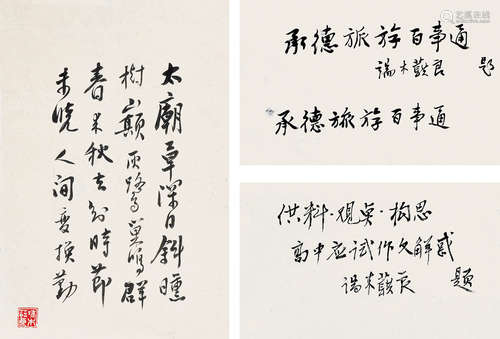 太廟草深日斜曛
樹山巔灰鷺巢鳴群
春来秋去知時節
未曉人间变换勤
承德旅游百事通
端木蕻良
题
承德旅游百事通
供料·观点·构思
高中应试作文解惑
端木蕻良
题